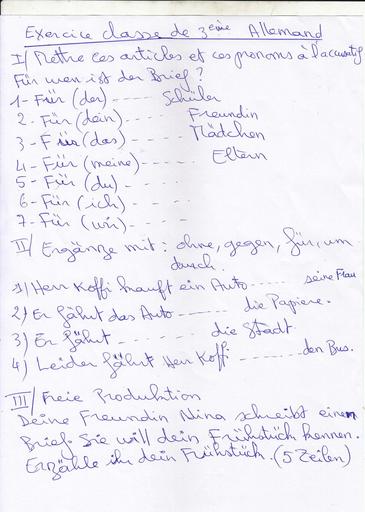 Exercice classe de 3eme Allemand
I/ Mettre ces articles et ces pronoms à l'accusatif
Für wen ist der Brief?
1- Für (der) ------- Schüler
2- Für (dein) ------- Freundin
3- Für (das) ------- Mädchen
4- Für (meine) ------- Eltern
5- Für (du) ------
6- Für (ich) ------
7- Für (wir) ------
II/ Ergänze mit: ohne, gegen, für, um
durch.
1/ Herr Koffi kauft ein Auto ------- seine Frau
2) Er fährt das Auto ------- die Papiere.
3) Er fährt ------- die Stadt
4) Leider fährt Herr Koffi ------- den Bus.
III/ Freie Produktion
Deine Freundin Nina schreibt einen
Brief. Sie will dein Frühstück kennen.
Erzähle ihr dein Frühstück. (5 Zeilen)